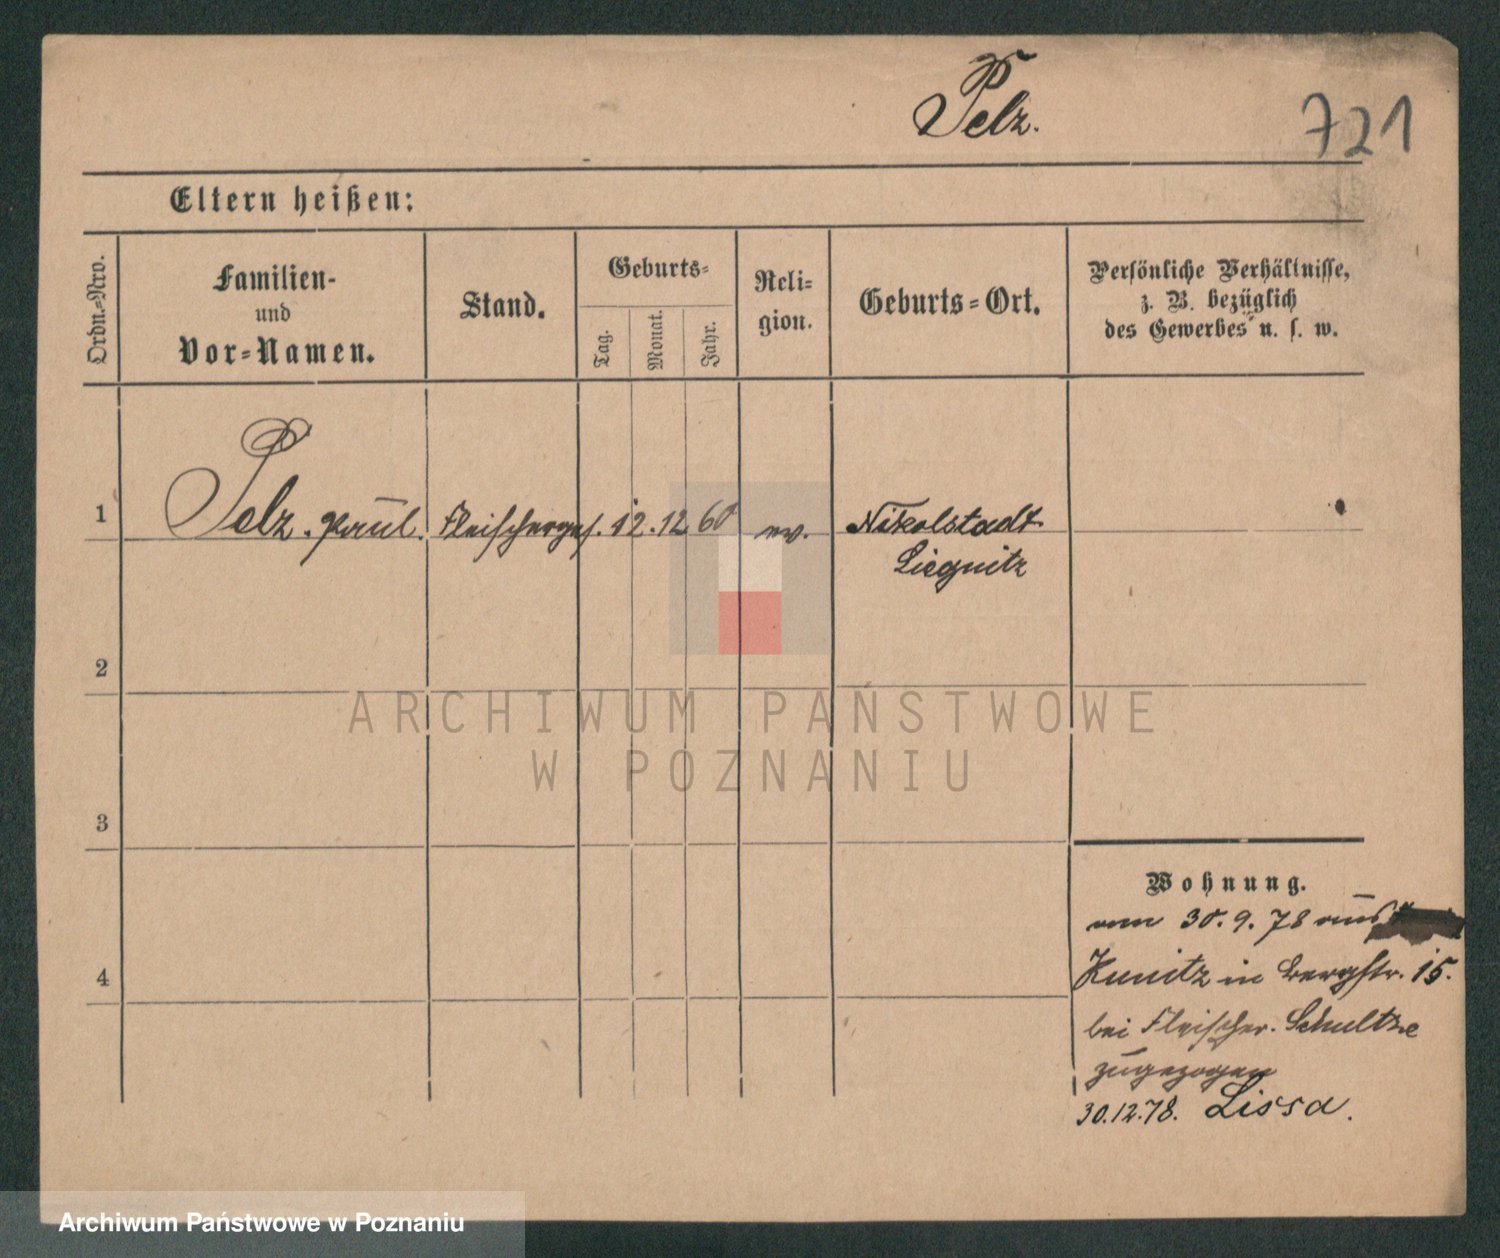 Pelz.
721
Eltern heißen:
Ordn.-Nro.
Familien-
und
Vor-Namen.
Stand.
Geburts-
Tag.
Monat.
Jahr.
Reli-
gion.
Geburts-Ort.
Persönliche Verhältnisse,
z. B. bezüglich
des Gewerbes u. s. w.
1
Pelz. Paul. Fleischerges. 12. 12 60 ev. Nikolstadt
Liegnitz
2
3
4
Wohnung.
vom 30. 9. 78 aus
Kunitz in Bergstr. 15.
bei Fleischer. Schultze
zugezogen
30.12.78. Lissa.
ARCHIWUM PAŃSTWOWE
W POZNANIU
Archiwum Państwowe w Poznaniu